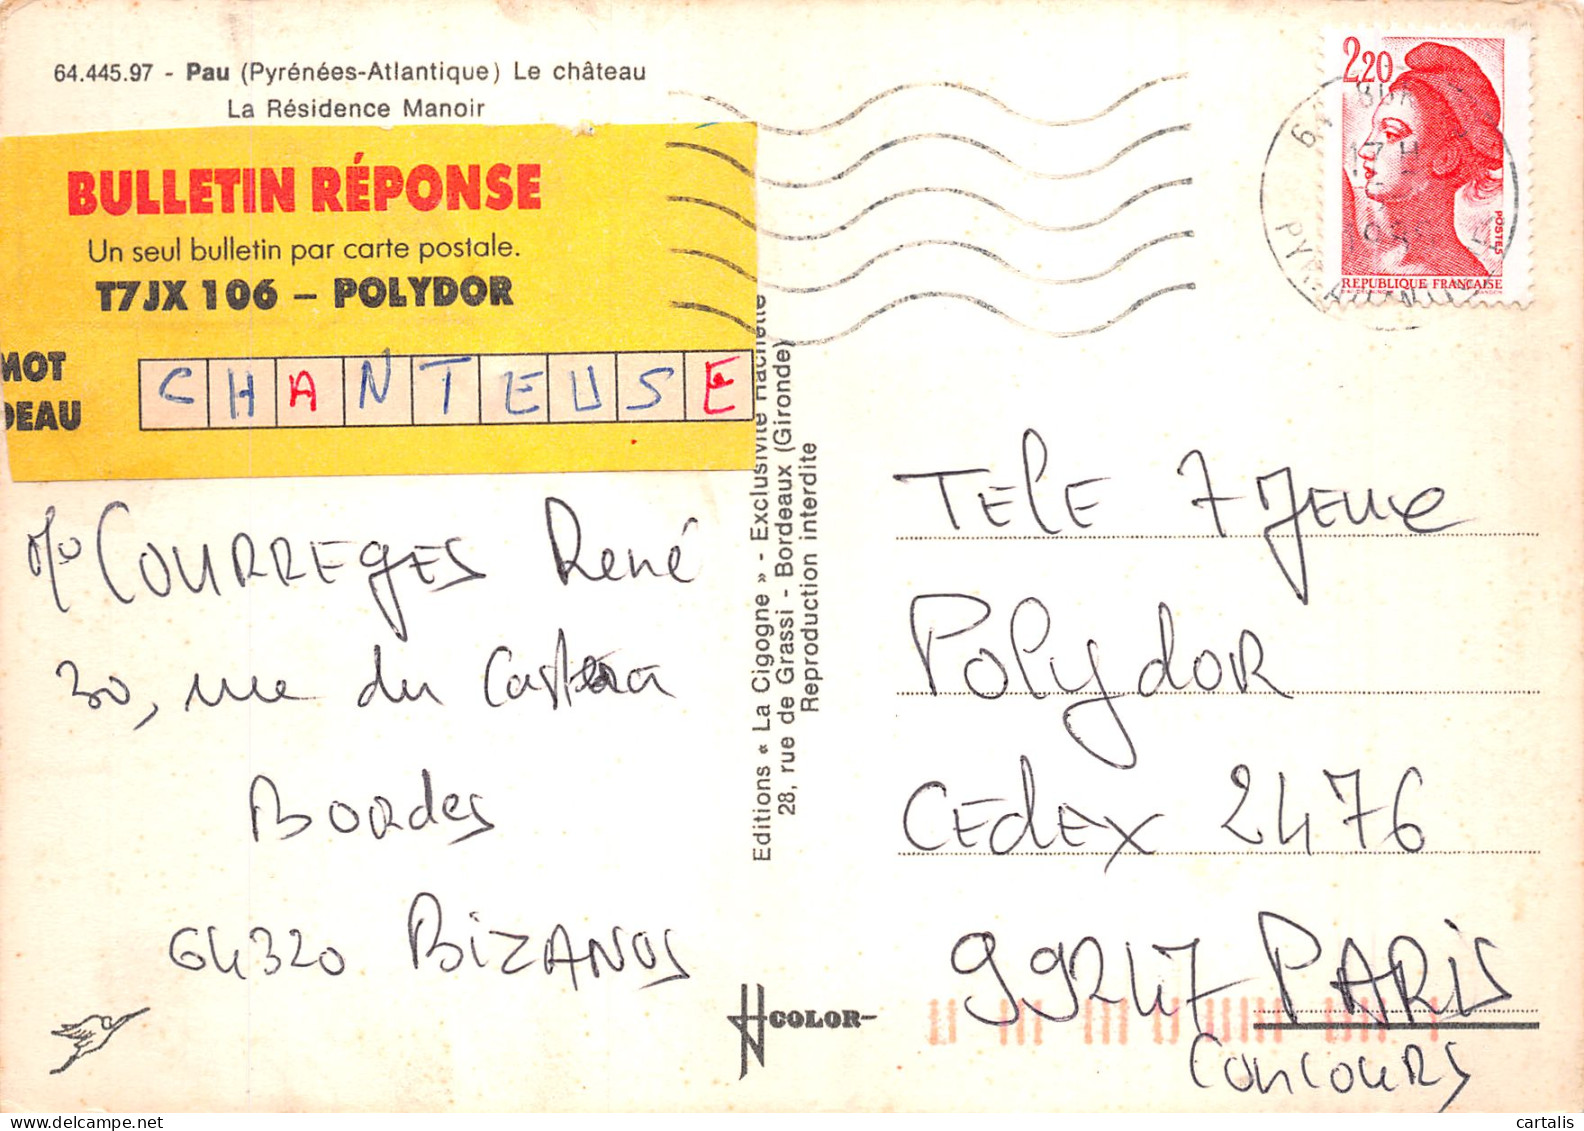 64.445.97 - Pau (Pyrénées-Atlantique) Le château
La Résidence Manoir
BULLETIN RÉPONSE
Un seul bulletin par carte postale.
T7JX 106 – POLYDOR
MOT
DEAU
CHANTEUSE
COURREGES René
30, rue du
Bordes
64320 BIZANOS
Editions « La Cigogne » - Exclusivité Hachette
28, rue de Grassi - Bordeaux (Gironde)
Reproduction interdite
COLOR
2,20
POSTES
REPUBLIQUE FRANÇAISE
TELE 7 Jeux
Polydor
CEdEx 2476
99247 PARIS
CONCOURS
cartalis